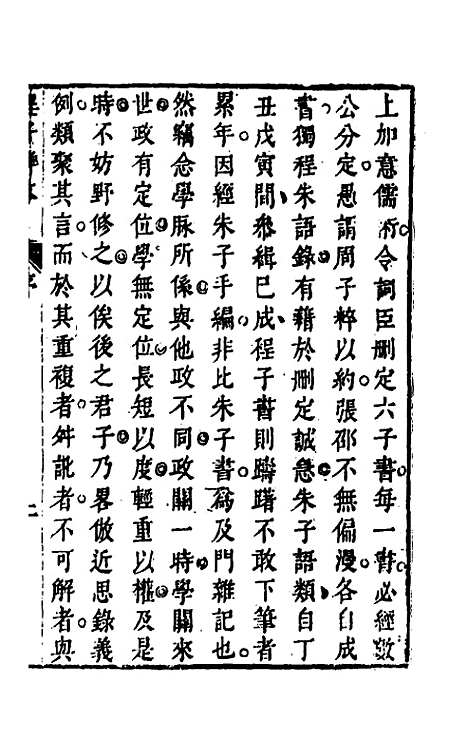 上加意儒術令詞臣刪定六子書每一書必經數
公分定愚謂周子粹以約張邵不無偏漫各自成
書獨程朱語錄有藉於刪定誠急朱子語類自丁
丑戊寅間㕘緝已成程子書則躊躇不敢下筆者
累年因經朱子手編非比朱子書爲及門雜記也
然竊念學脉所係與他政不同政關一時學關來
世政有定位學無定位長短以度輕重以權及是
時不妨野修之以俟後之君子乃畧倣近思錄義
例類聚其言而於其重複者舛訛者不可解者與
序
二